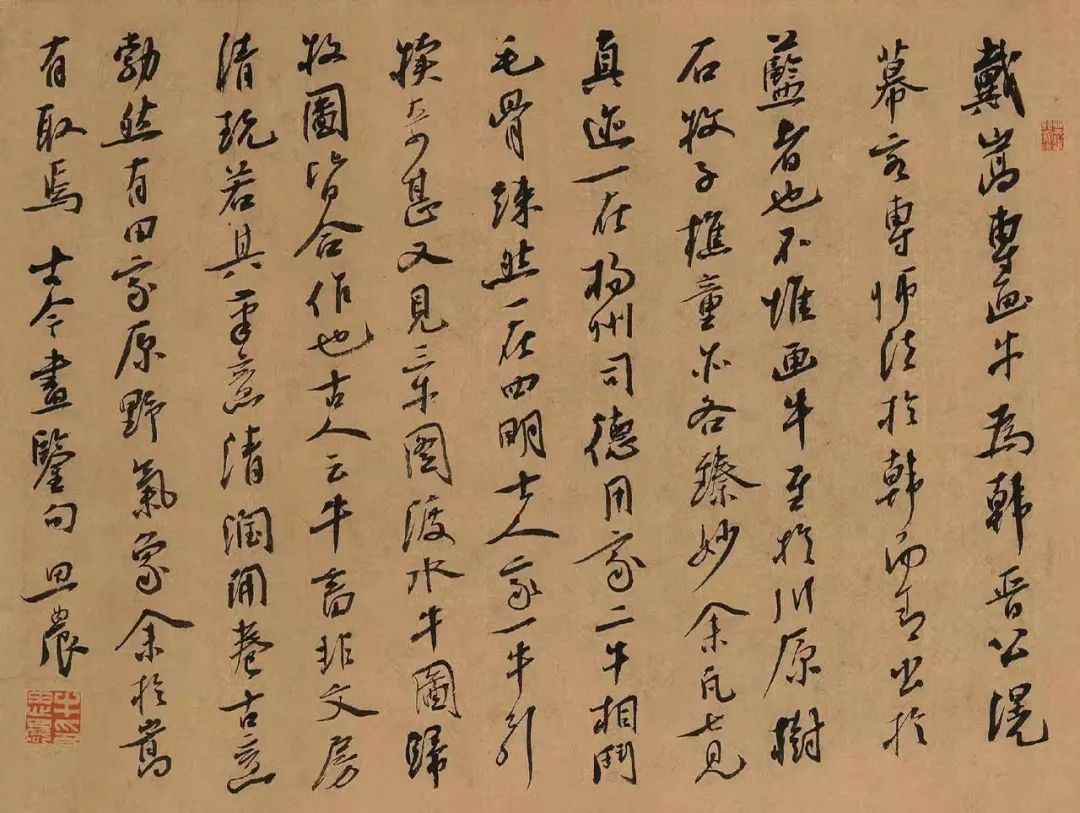 戴嵩專画牛為韓晋公滉
幕客專师法於韓而青出於
藍者也不惟画牛至於川原樹
石牧子樵童亦各臻妙余凡七見
真迹一在杨州司德用家二牛相鬥
毛骨竦然一在四明士人家一牛引
犢奇甚又見三图渡水牛圖歸
牧圖皆合作也古人云牛畜非文房
清玩若其筆意清潤開卷古意
勃然有田家原野氣象余於嵩
有取焉 士令畫鑒句 思農